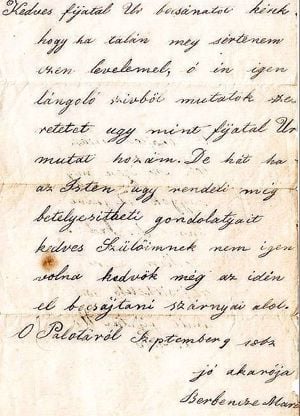 Kedves fijatal Ur bocsánatot kérek
hogy ha talán meg sértenem
ezen levelemel, ó én igen
lángoló szivböl mutatok sze
retetet ugy mint fijatal Ur
mutat hozám. De hát ha
az Isten ugy rendeli míg
betelyesitheti gondolatyait
kedves Szülöimnek nem igen
volna kedvök még az idén
el bocsájtani szárnyai alol.
O Palotáról Szeptember 9
jó akarója
Berbencze Mari